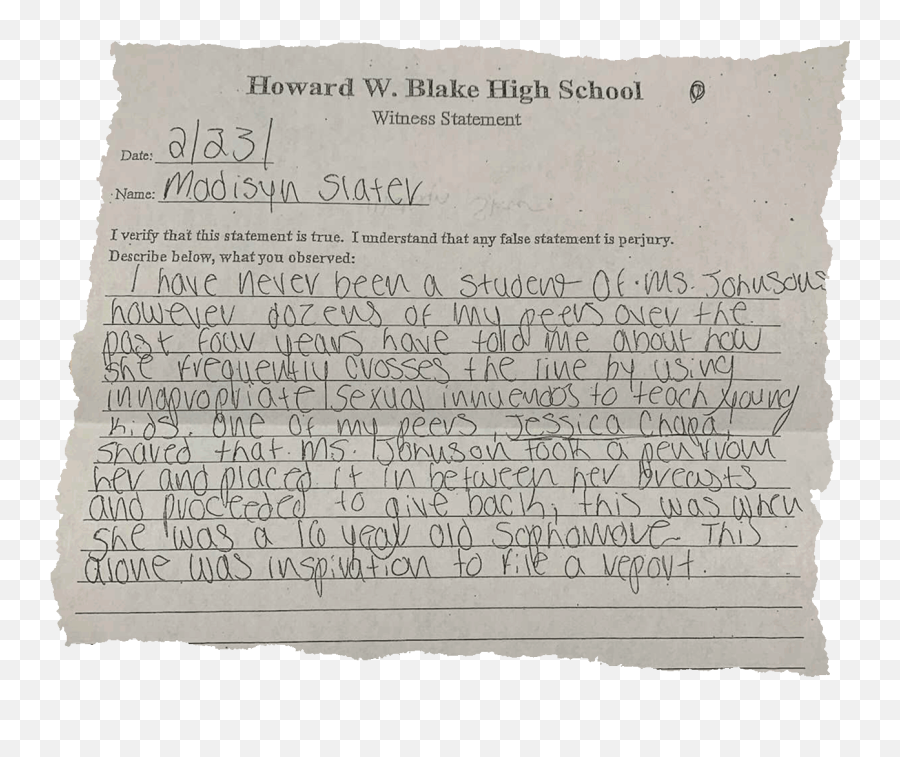 Howard W. Blake High School
Witness Statement
Date: 2/23/
Name: Madisyn Slater
I verify that this statement is true. I understand that any false statement is perjury.
Describe below, what you observed:
I have never been a student of Ms. Johnsons
however dozens of my peers over the
past four years have told me about how
she frequently crosses the line by using
innapropriate sexual innuendos to teach young
kids. One of my peers, Jessica Chapa,
shared that Ms. Johnson took a pen from
her and placed it in between her breasts
and proceeded to give back, this was when
she was a 16 year old sophomore. This
alone was inspiration to file a report.